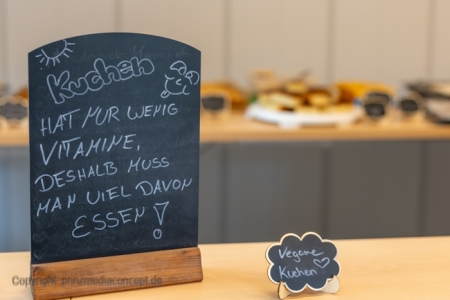 Kuchen
HAT NUR WENIG
VITAMINE,
DESHALB MUSS
MAN VIEL DAVON
ESSEN!
Vegane
Kuchen
Copyright: prinzmediaconcept.de